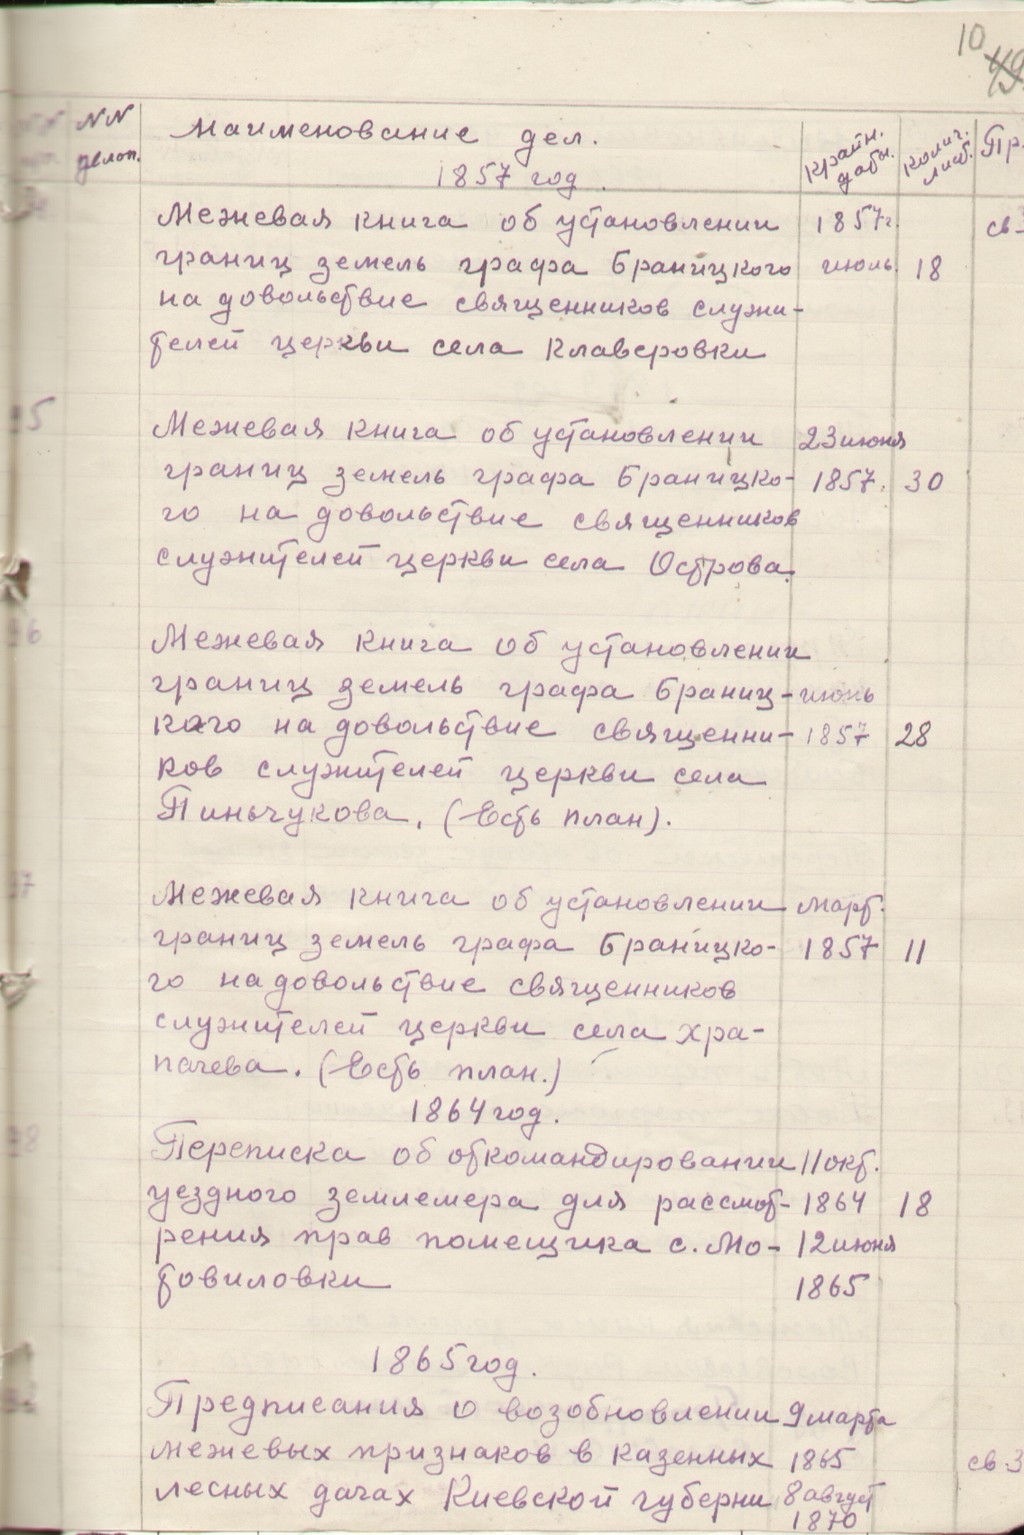 10
NN делоп. Наименование дел. Крайн. даты. Колич. лист. Пр.
1857 год.
Межевая книга об установлении 1857г. св.
границ земель графа Браницкого июль 18
на довольствие священников служи-
телей церкви села Клаверовки
5 Межевая книга об установлении 23 июня
границ земель графа Браницко- 1857. 30
го на довольствие священников
служителей церкви села Острова.
6 Межевая книга об установлении
границ земель графа Браниц- июнь
кого на довольствие священни- 1857 28
ков служителей церкви села
Пиньчукова. (Есть план).
7 Межевая книга об установлении март.
границ земель графа Браницко- 1857 11
го на довольствие священников
служителей церкви села Хра-
пачева. (Есть план.)
1864 год.
8 Переписка об откомандировании 11 окт.
уездного землемера для рассмот- 1864 18
рения прав помещика с. Мо- 12 июня
товиловки 1865
1865 год.
Предписания о возобновлении 9 марта
межевых признаков в казенных 1865 св 3
лесных дачах Киевской губерни 8 август
1870